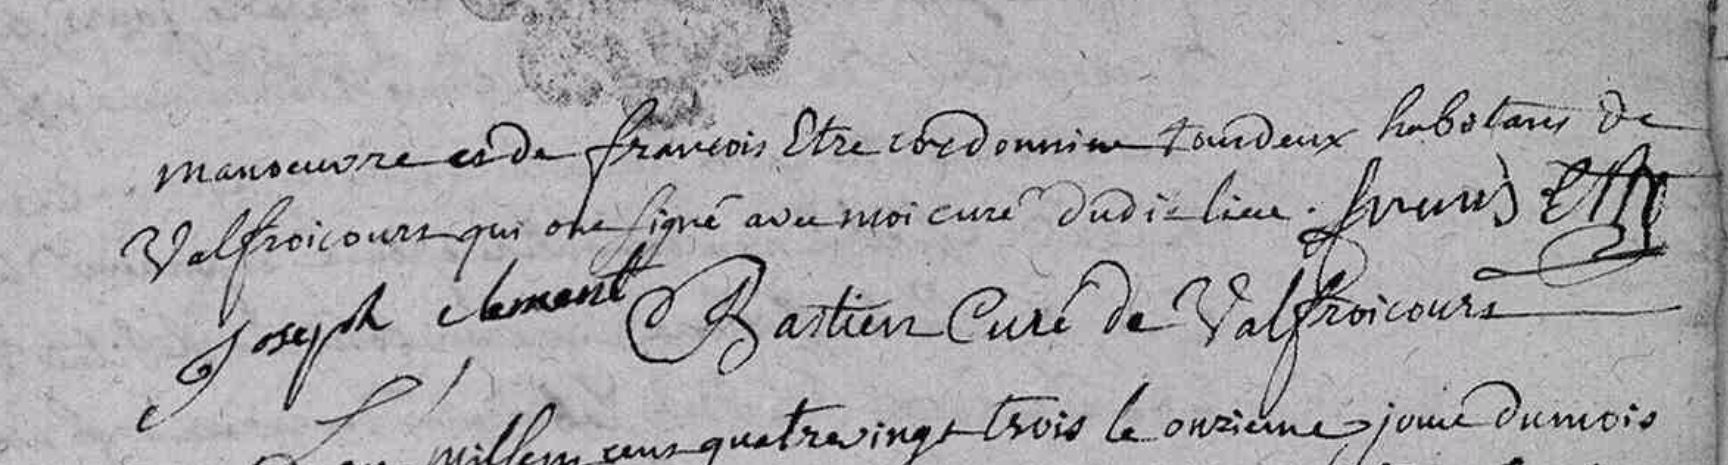 manoeuvre et de françois Etre cordonnier tousdeux habitans de
Valfroicourt qui ont signé avec moi curé dudit lieu. françois Etre
Joseph clement Bastien Curé de Valfroicourt
L'an mil sept cens quatrevingt trois le onzieme jour du mois